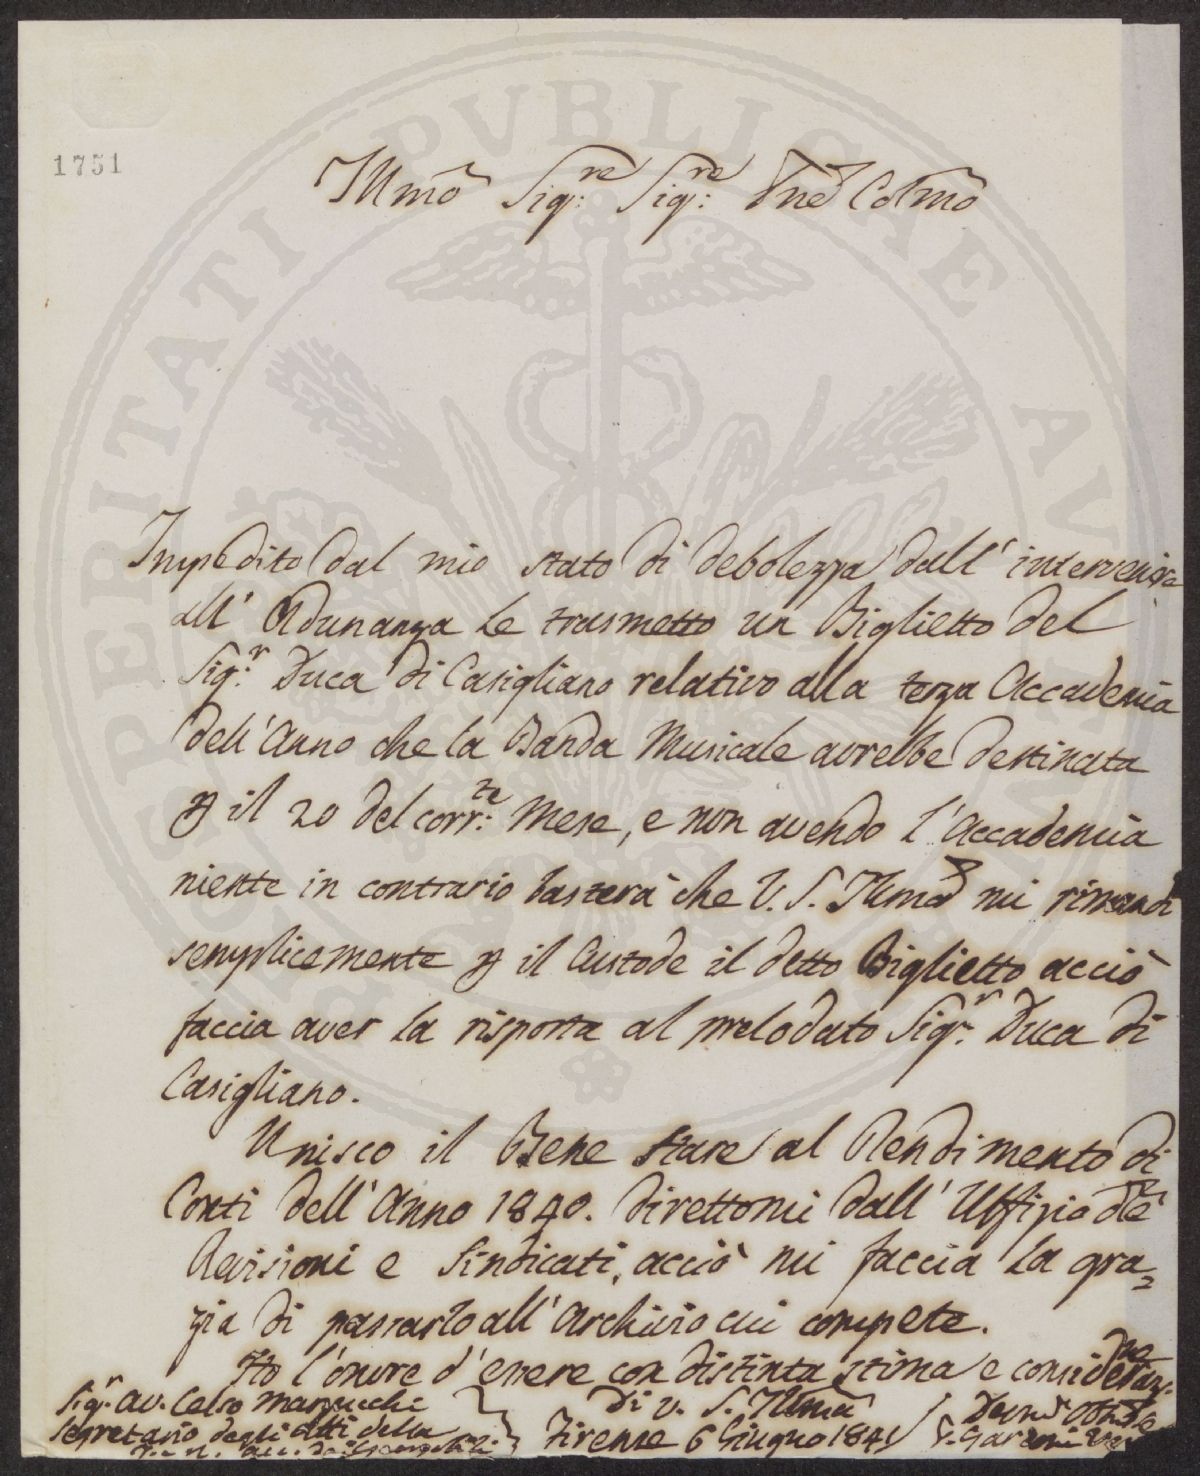 1751
PROSPERITATI PVBLICAE AVGENDAE
Illmo Sig:re Sig:re Pne Colmo
Impedito dal mio stato di debolezza dall' intervenire
all' Adunanza Le trasmetto un Biglietto del
Sig:r Duca di Casigliano relativo alla terza Accademia
dell' Anno che la Banda Musicale avrebbe destinata
p il 20 del corr:te Mese, e non avendo l' Accademia
niente in contrario basterà che V. S. Illma mi rimandi
semplicemente p il Custode il detto Biglietto acciò
faccia aver la risposta al prelodato Sig:r Duca di
Casigliano.
Unisco il Bene stare al Rendimento di
Conti dell' Anno 1840. direttomi dall' Uffizio de
Revisioni e Sindicati, acciò mi faccia la gra=
zia di passarlo all' Archivio cui compete.
Ho l' onore d' essere con distinta stima e consideraz.ne
Di V. S. Illma
Firenze 6 Giugno 1841
Sig.r Av. Celso Marzucchi
Segretario degli Atti della